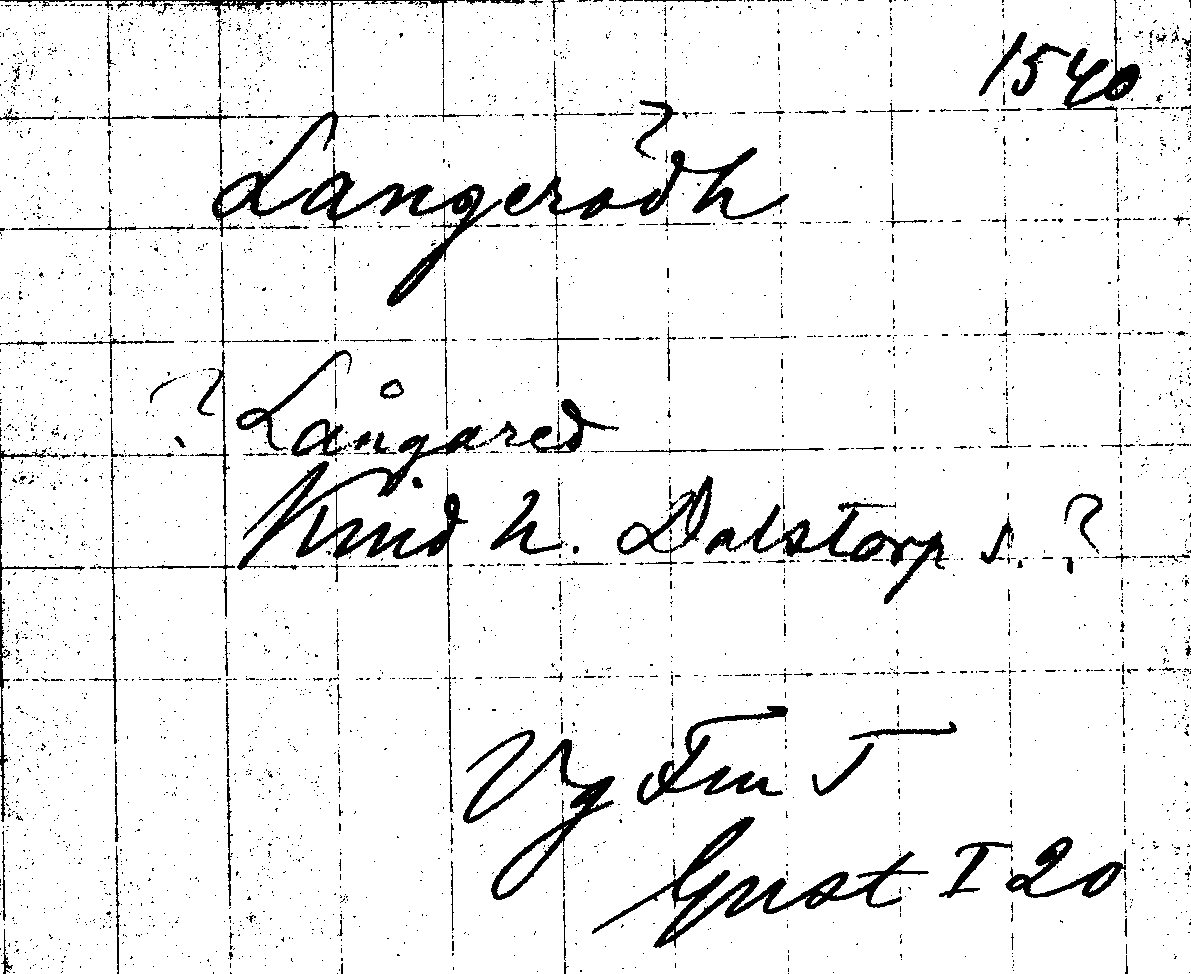 1540
Langerodh
? Långared
Kind h. Dalstorp s. ?
Vg Fru T
Gust I 20